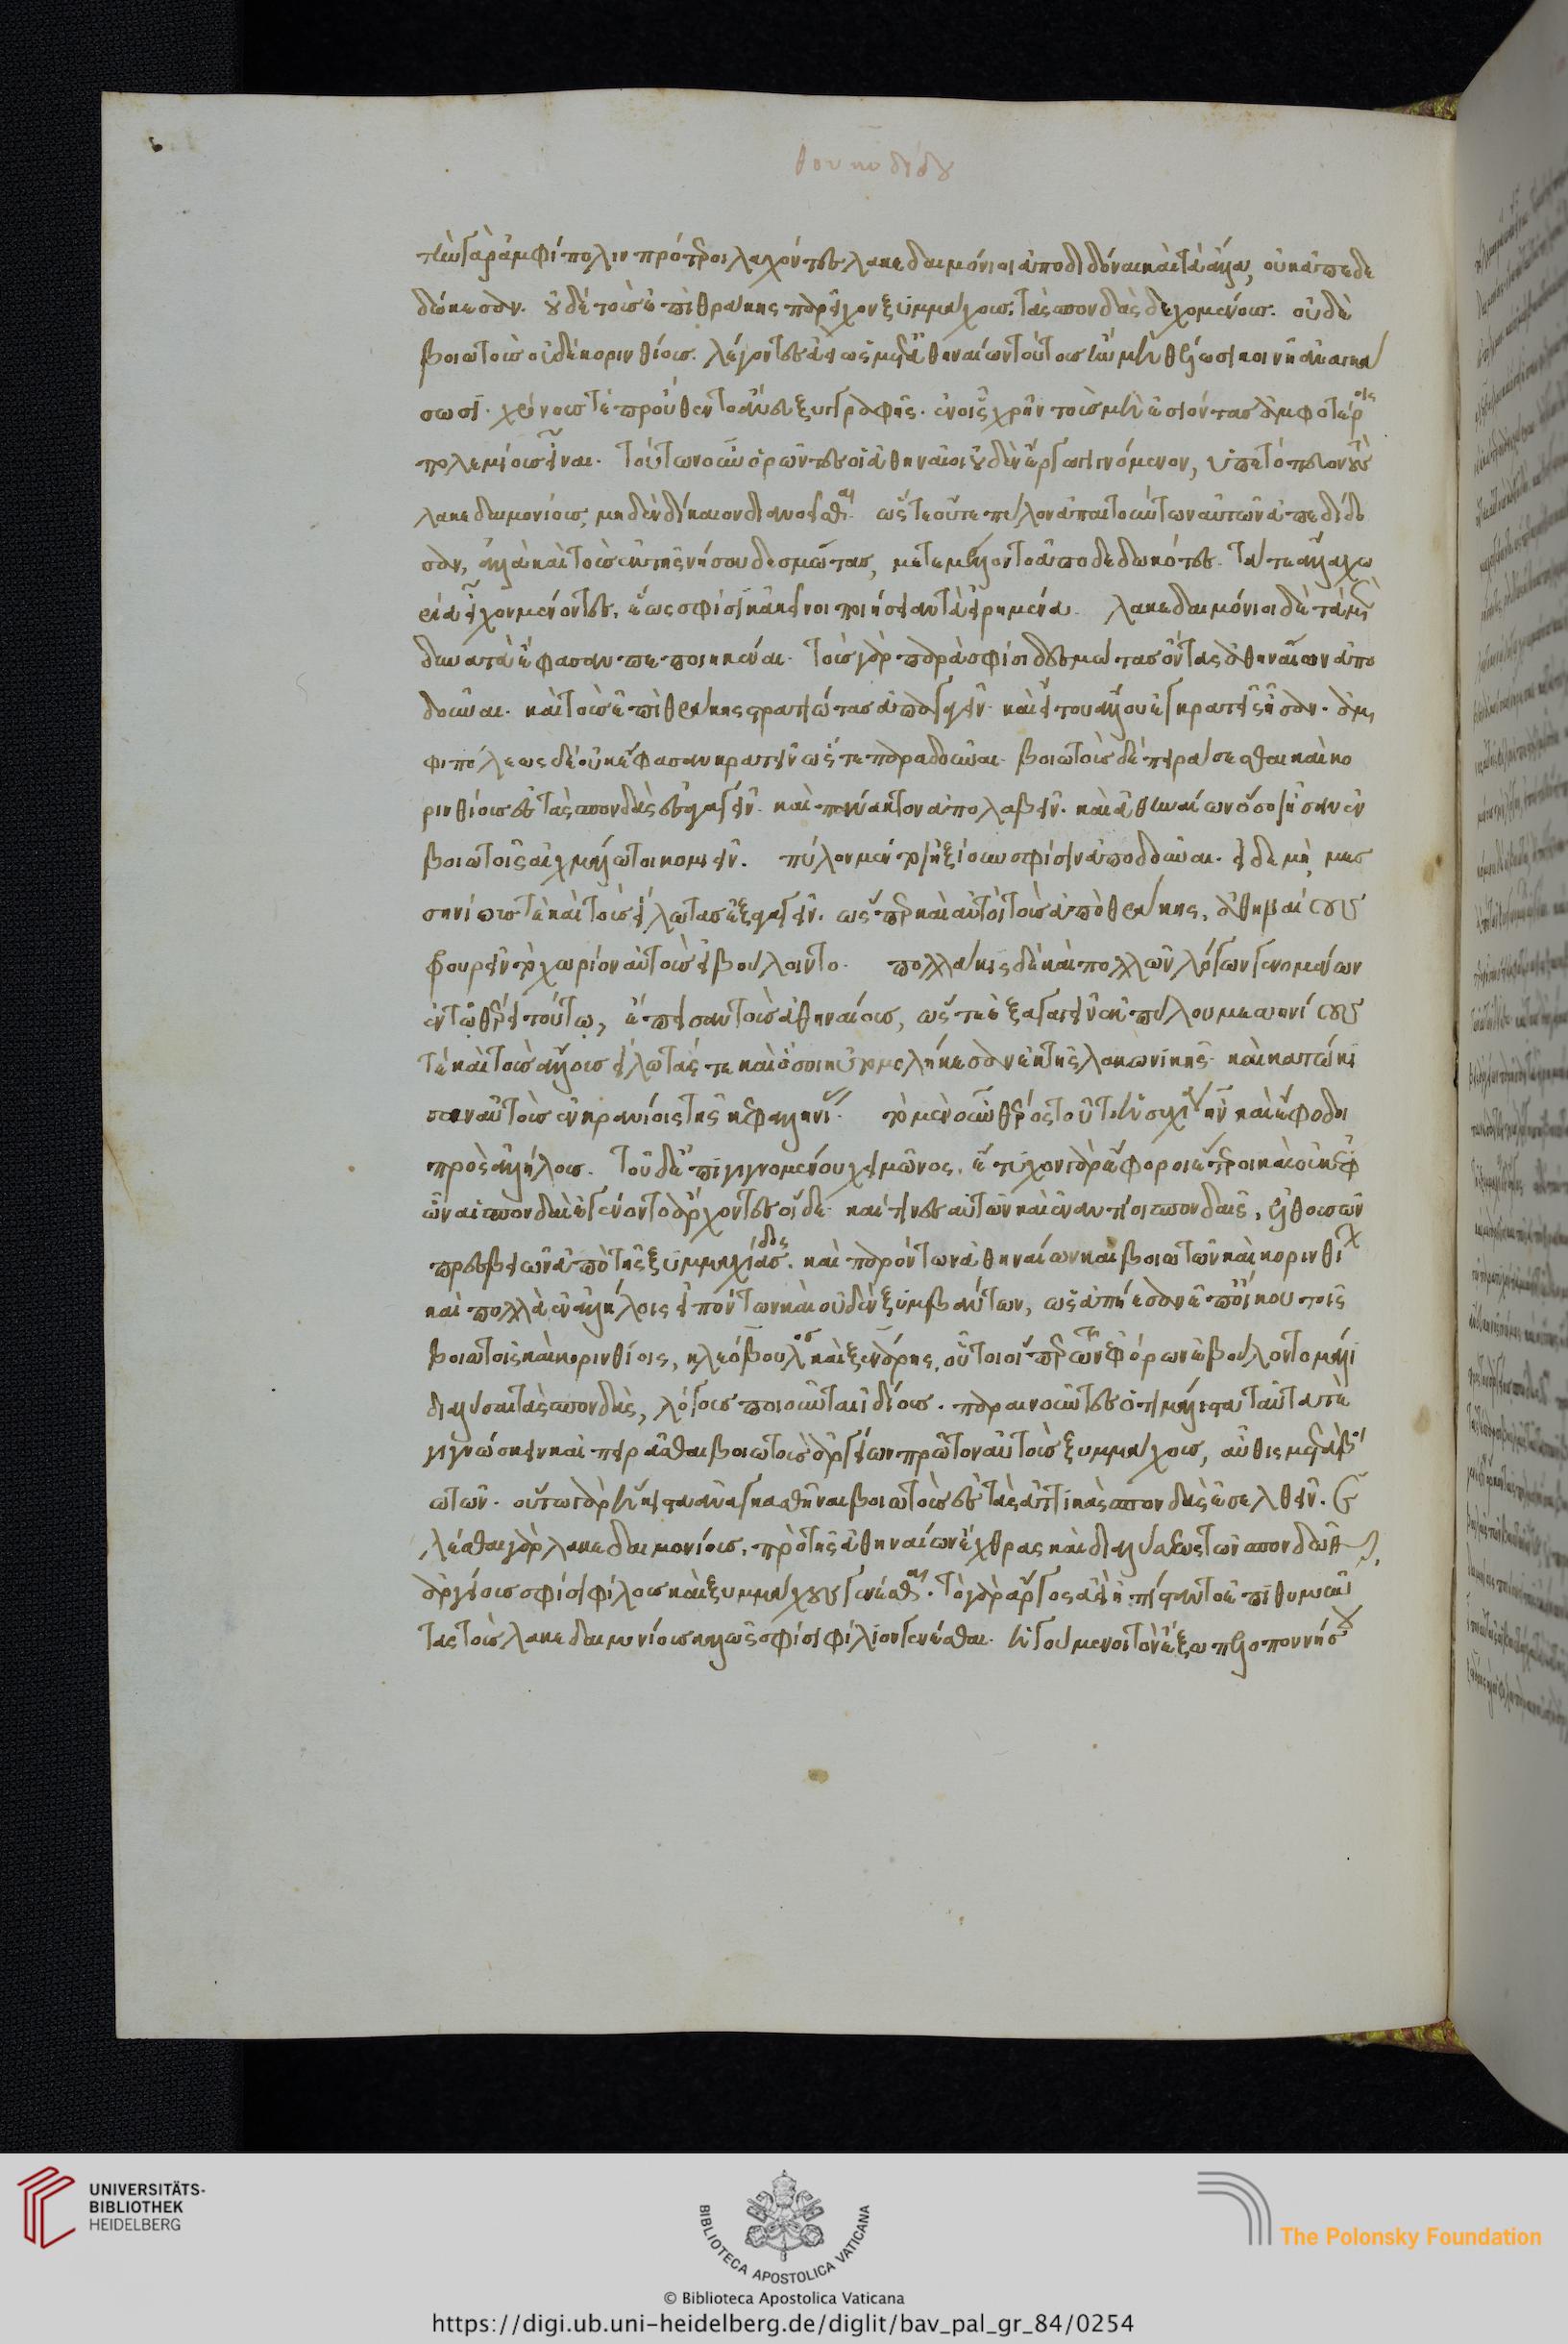 θουκυδίδου
τὴν γὰρ ἀμφίπολιν πρότεροι λαχόντες λακεδαιμόνιοι ἀποδιδόναι καὶ τὰ ἄλλα, οὐκ ἀπεδε
δώκεσαν. οὐδὲ τοὺς ἐπὶ θράκης παρεῖχον ξυμμάχους, τὰς σπονδὰς δεχομένους. οὐδὲ
βοιωτοὺς οὐδὲ κορινθίους. λέγοντες ἀεὶ ὡς μετὰ ἀθηναίων τούτους ἢν μὴ θέλωσι κοινῇ ἀναγκά
σωσι. χρόνους τὲ προὔθεντο ἄνευ ξυγγραφῆς. ἐν οἷς χρῆν τοὺς μὴ ἐσιόντας ἀμφοτέροις
πολεμίους εἶναι. τούτων οὖν ὁρῶντες οἱ ἀθηναῖοι οὐδὲν ἔργῳ γινόμενον, ὑπετόπευον τοὺς
λακεδαιμονίους, μηδὲν δίκαιον διανοεῖσθαι. ὥστε οὔτε πύλον ἀπαιτούντων αὐτῶν ἀπεδίδο
σαν, ἀλλὰ καὶ τοὺς ἐκ τῆς νήσου δεσμώτας, μετεμέλοντο ἀποδεδωκότες. τά τε ἄλλα χω
ρία εἶχον μένοντες, ἕως σφίσι κἀκεῖνοι ποιήσειαν τὰ εἰρημένα. λακεδαιμόνιοι δὲ τὰ μὲν
δυνατὰ ἔφασαν πεποιηκέναι. τοὺς γὰρ παρὰ σφίσι δεσμώτας ὄντας ἀθηναίων ἀπο
δοῦναι. καὶ τοὺς ἐπὶ θράκης στρατιώτας ἀπαγαγεῖν. καὶ εἴ του ἄλλου ἐγκρατεῖς ἦσαν. ἀμ
φιπόλεως δὲ οὐκ ἔφασαν κρατεῖν ὥστε παραδοῦναι. βοιωτοὺς δὲ πειράσεσθαι καὶ κο
ρινθίους ἐς τὰς σπονδὰς ἐσαγαγεῖν. καὶ πάνακτον ἀπολαβεῖν. καὶ ἀθηναίων ὅσοι ἦσαν ἐν
βοιωτοῖς αἰχμάλωτοι κομιεῖν. πύλον μέν τοι ἠξίουν σφίσιν ἀποδοῦναι. εἰ δὲ μὴ, μεσ
σηνίους τὲ καὶ τοὺς εἵλωτας ἐξαγαγεῖν. ὥσπερ καὶ αὐτοὶ τοὺς ἀπὸ θράκης, ἀθηναίους
φρουρεῖν τὸ χωρίον αὐτοὺς εἰ βούλοιντο. πολλάκις δὲ καὶ πολλῶν λόγων γενομένων
ἐν τῷ θέρει τούτῳ, ἔπεισαν τοὺς ἀθηναίους, ὥστε ἐξαγαγεῖν ἐκ πύλου μεσσηνίους
τὲ καὶ τοὺς ἄλλους εἵλωτάς τε καὶ ὅσοι ηὐτομολήκεσαν ἐκ τῆς λακωνικῆς. καὶ κατῴκι
σαν αὐτοὺς ἐν κρανίοις τῆς κεφαλληνίας. τὸ μὲν οὖν θέρος τοῦτο ἡσυχία ἦν καὶ ἔφοδοι
πρὸς ἀλλήλους. τοῦ δ' ἐπιγιγνομένου χειμῶνος, ἔτυχον γὰρ ἔφοροι ἕτεροι καὶ οὐκ ἐφ'
ὧν αἱ σπονδαὶ ἐγένοντο ἄρχοντες οἵδε. καί τινες αὐτῶν καὶ ἐναντίοι σπονδαῖς, ἐλθουσῶν
πρεσβειῶν ἀπὸ τῆς ξυμμαχίδος. καὶ παρόντων ἀθηναίων καὶ βοιωτῶν καὶ κορινθίων
καὶ πολλὰ ἐν ἀλλήλοις εἰπόντων καὶ οὐδὲν ξυμβάντων, ὡς ἀπῄεσαν ἐπ' οἴκου τοῖς
βοιωτοῖς καὶ κορινθίοις, κλεόβουλος καὶ ξενάρης, οὗτοι οἵπερ τῶν ἐφόρων ἐβούλοντο μάλιστα
διαλῦσαι τὰς σπονδὰς, λόγους ποιοῦνται ἰδίους. παραινοῦντες ὅτι μάλιστα ταῦτά τε
γιγνώσκειν καὶ πειρᾶσθαι βοιωτοὺς ἀργείων πρῶτον αὐτοὺς ξυμμάχους, αὖθις μετὰ βοι
ωτῶν. οὕτω γὰρ ἥκιστα ἀναγκασθῆναι βοιωτοὺς ἐς τὰς ἀττικὰς σπονδὰς ἐσελθεῖν. ἑ
λέσθαι γὰρ λακεδαιμονίους, πρὸ τῆς ἀθηναίων ἔχθρας καὶ διαλύσεως τῶν σπονδῶν
ἀργείους σφίσι φίλους καὶ ξυμμάχους γενέσθαι. τὸ γὰρ ἄργος ἀεὶ ἠπίσταντο ἐπιθυμοῦν
τας τοὺς λακεδαιμονίους καλῶς σφίσι φίλιον γενέσθαι. ἡγούμενοι τὸν ἔξω πελοποννήσου
UNIVERSITÄTS-
BIBLIOTHEK
HEIDELBERG
BIBLIOTECA APOSTOLICA VATICANA
© Biblioteca Apostolica Vaticana
The Polonsky Foundation
https://digi.ub.uni-heidelberg.de/diglit/bav_pal_gr_84/0254